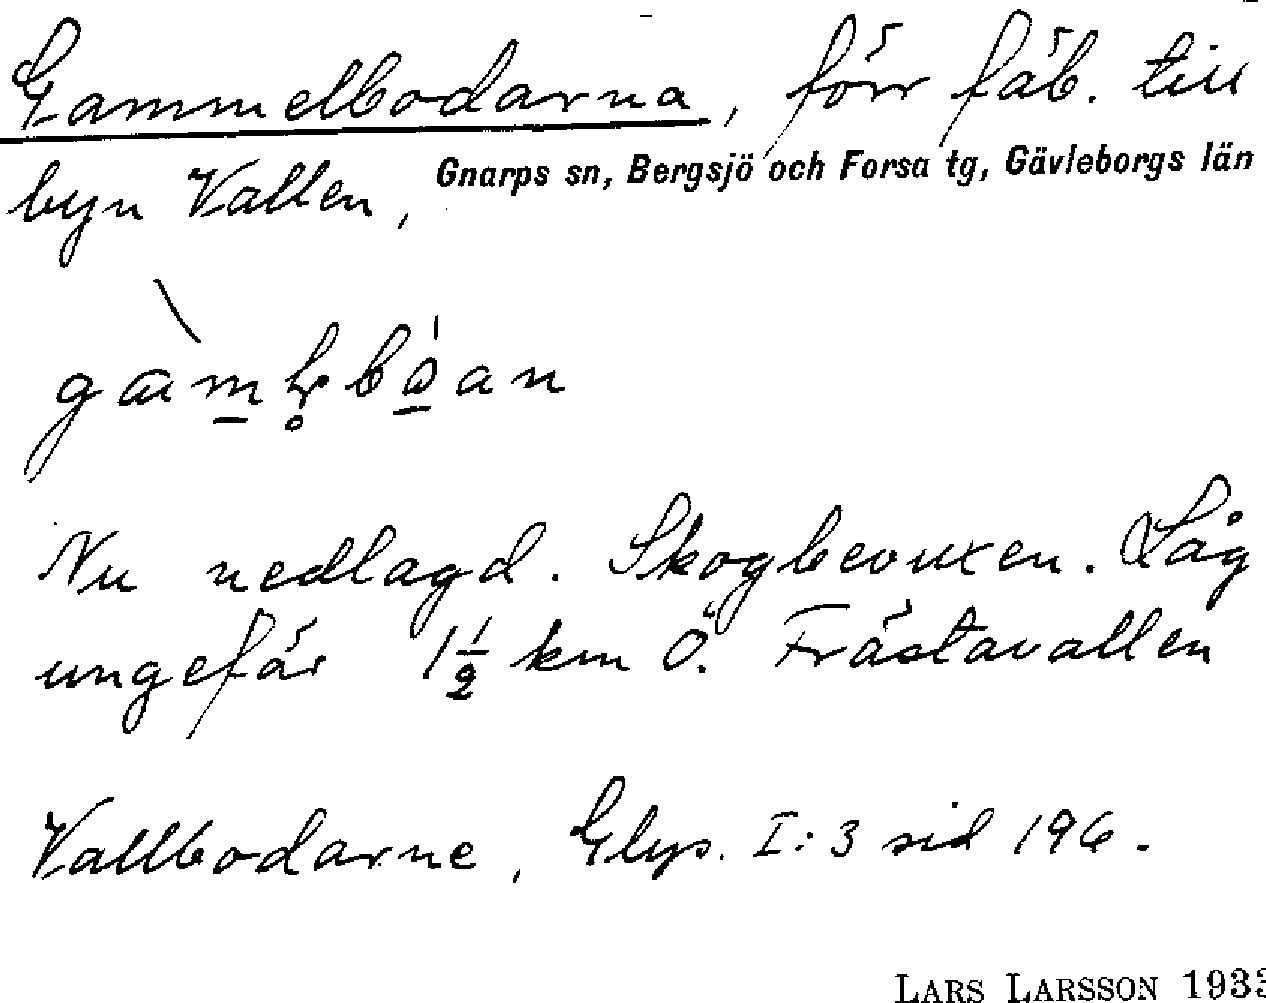 Gammelbodarna, förr fäb. till
Gnarps sn, Bergsjö och Forsa tg, Gävleborgs län
byn Vallen,
Nu nedlagd. Skogbevuxen. Låg
ungefär 1½ km Ö. Frästavallen
Vallbodarne, Glys. I:3 sid 196.
LARS LARSSON 193